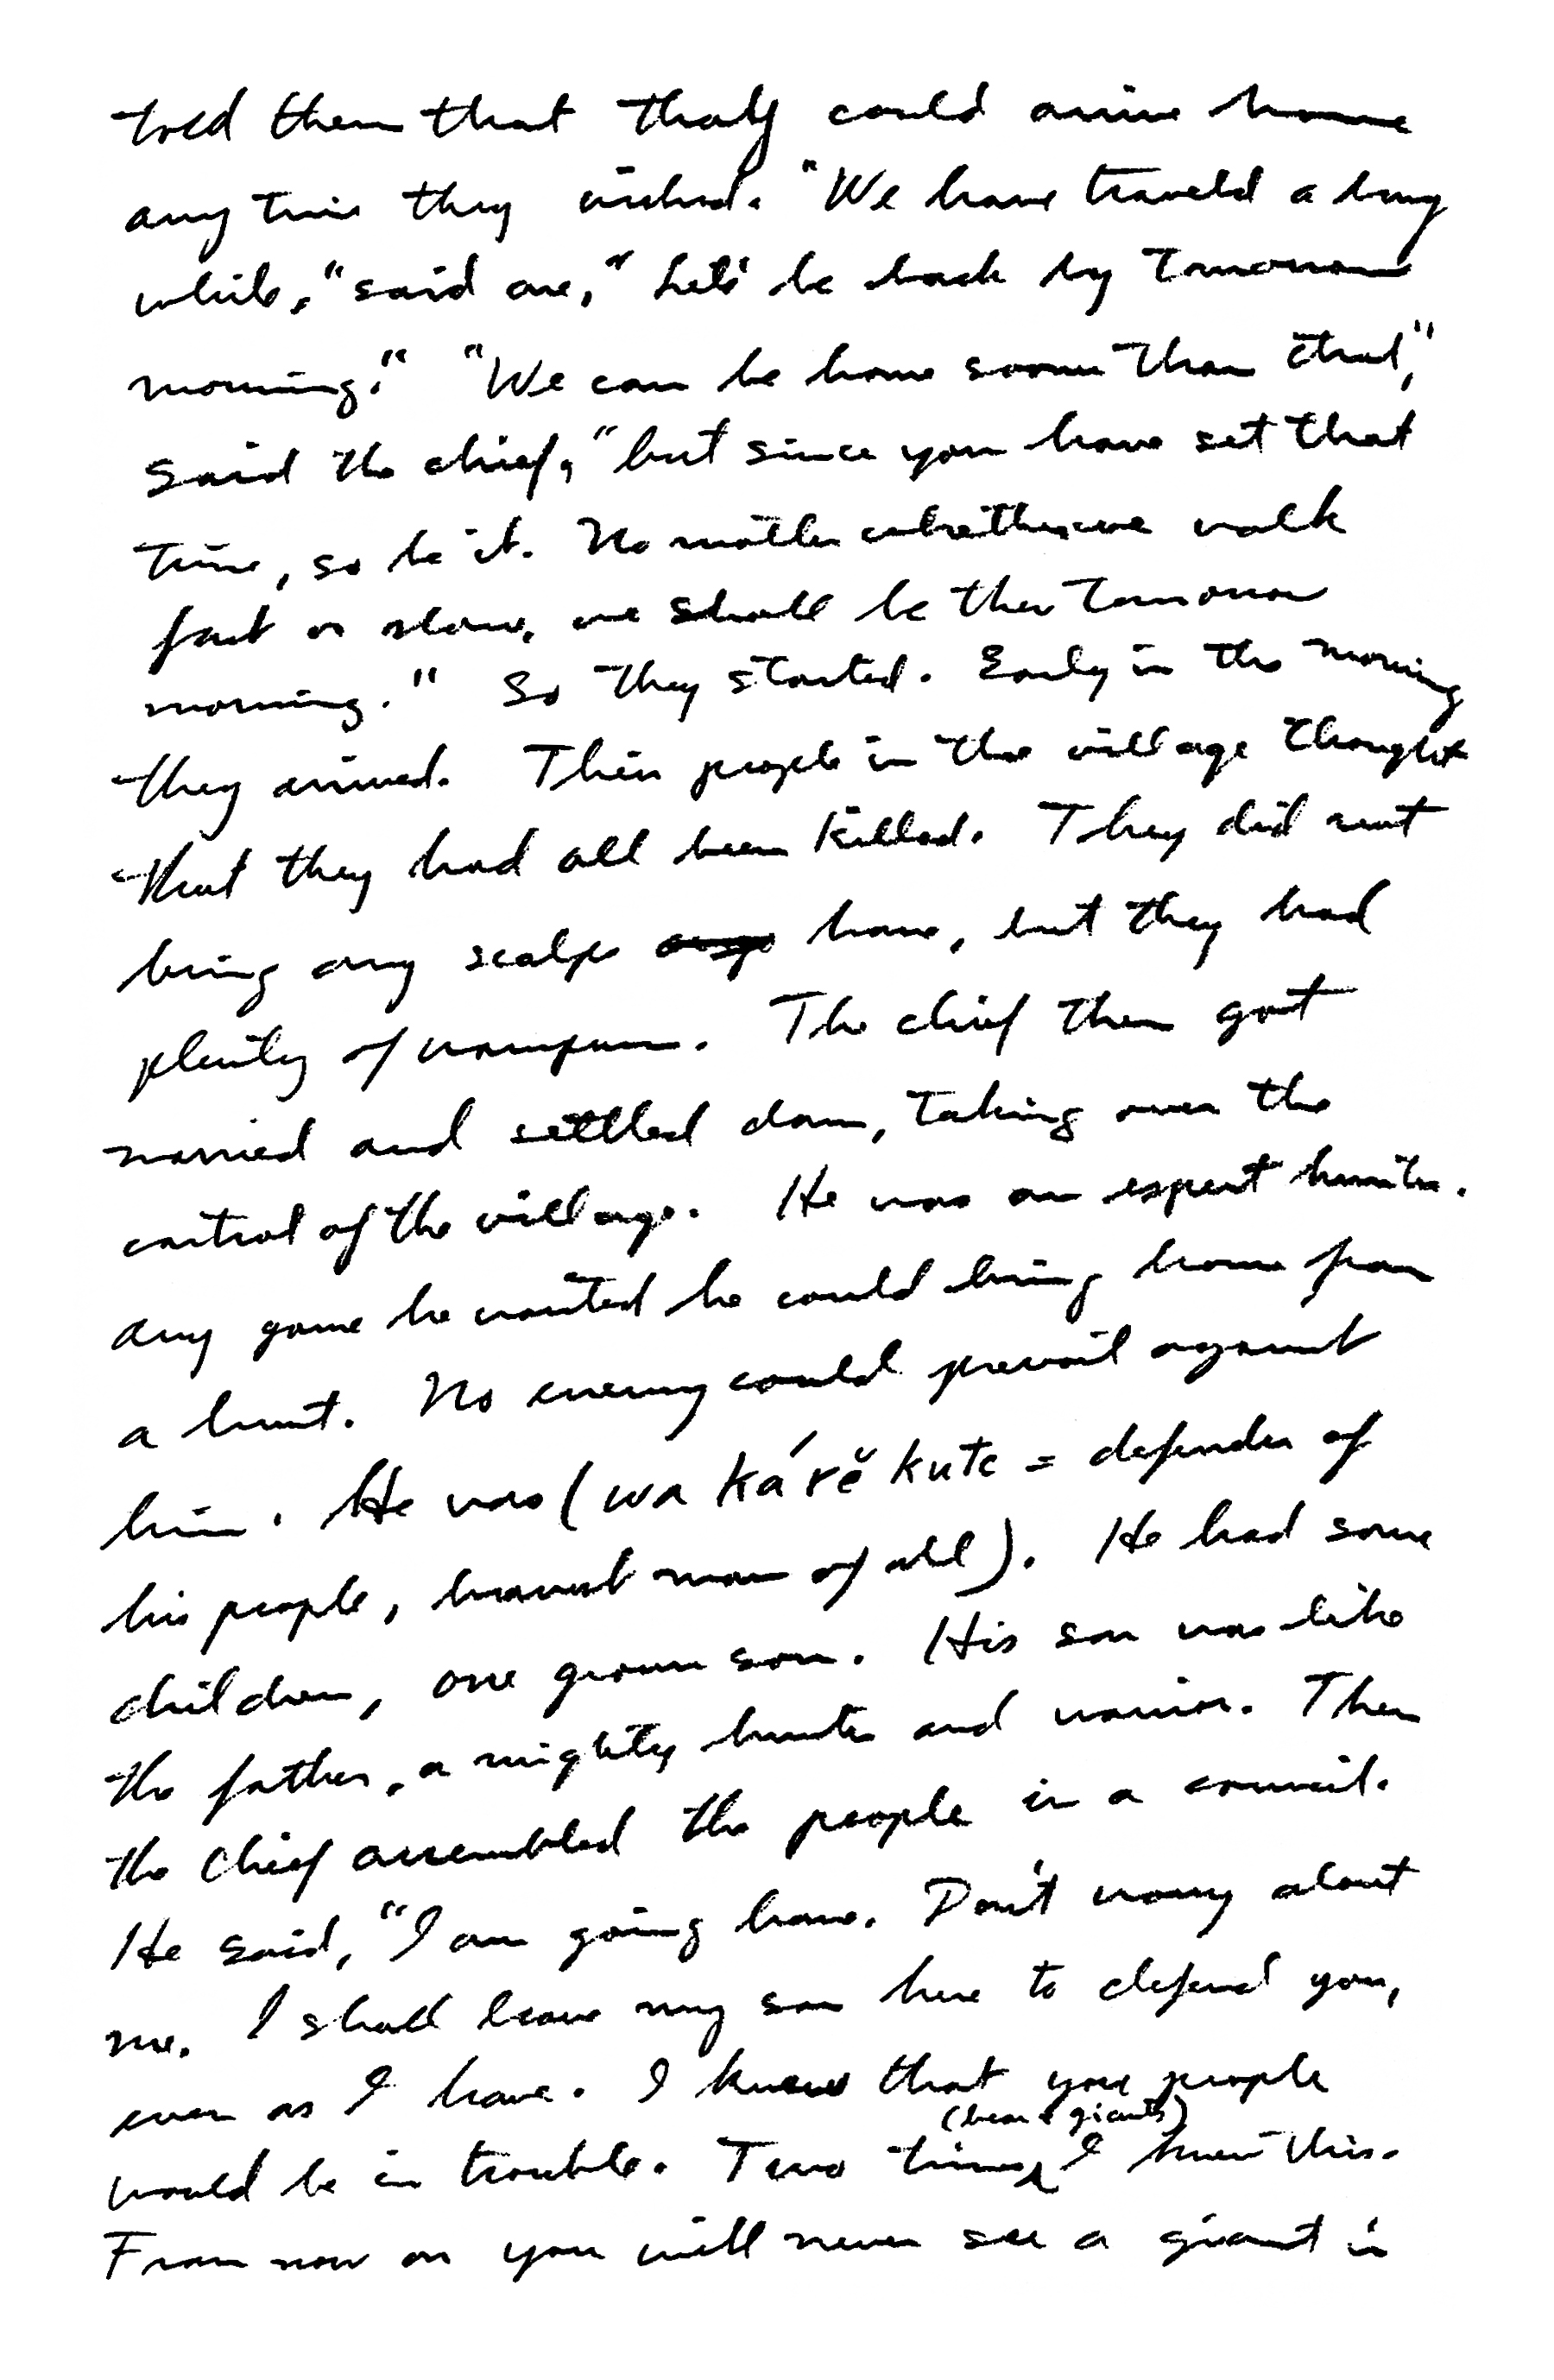 told them that they could arrive home
any time they wished. "We have traveld a long
while," said one, "Let's be back by tomorrow
morning." "We can be home sooner than that,"
said the chief, "but since you have set that
time, so be it. No matter whether we walk
fast or slow, we shall be ther tomorrow
morning." So they started. Early in the morning
they arrived. Their people in the village thought
that they had all been killed. They did not
bring any scalps home, but they had
plenty of wampum. The chief then got
married and settled down, taking over the
control of the village. He was an expert hunter.
any game he wanted he could bring home from
a hunt. No enemy could prevail against
him. He was (wa ká rě kutc = defender of
his people, bravest man of all). He had some
children, one grown son. His son was like
the father, a mighty hunter and warrior. Then
the chief assembled the people in a council.
He said, "I am going home. Don't worry about
me. I shall leave my son here to defend you,
even as I have. I knew that you people
(bear & giants)
would be in trouble. Two times I knew this.
From now on you will never see a giant in